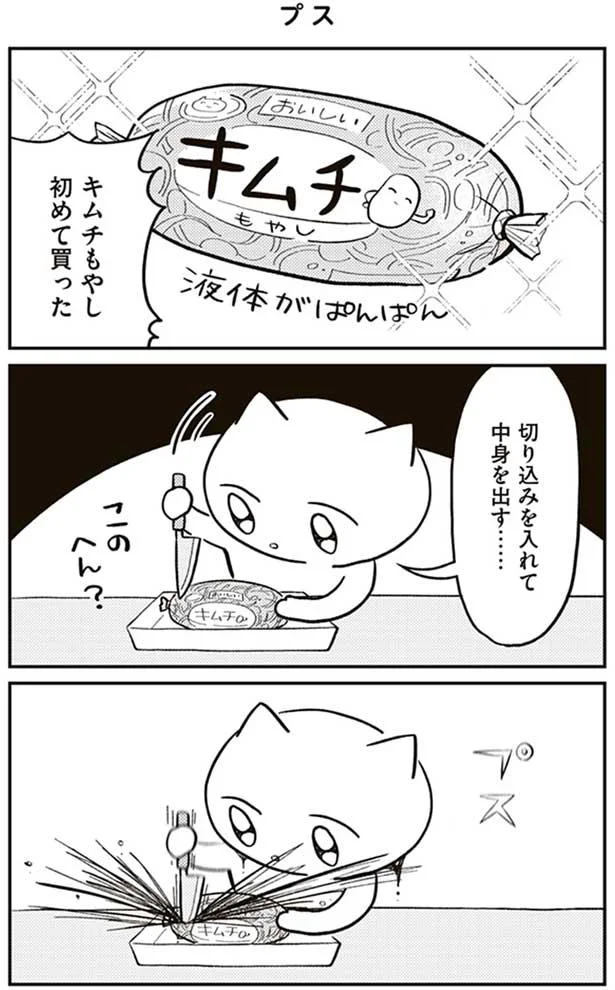 プス
おいしい
キムチ
もやし
キムチもやし
初めて買った
液体がぱんぱん
切り込みを入れて
中身を出す……
この
へん?
おいしい
キムチ
プス
キムチ